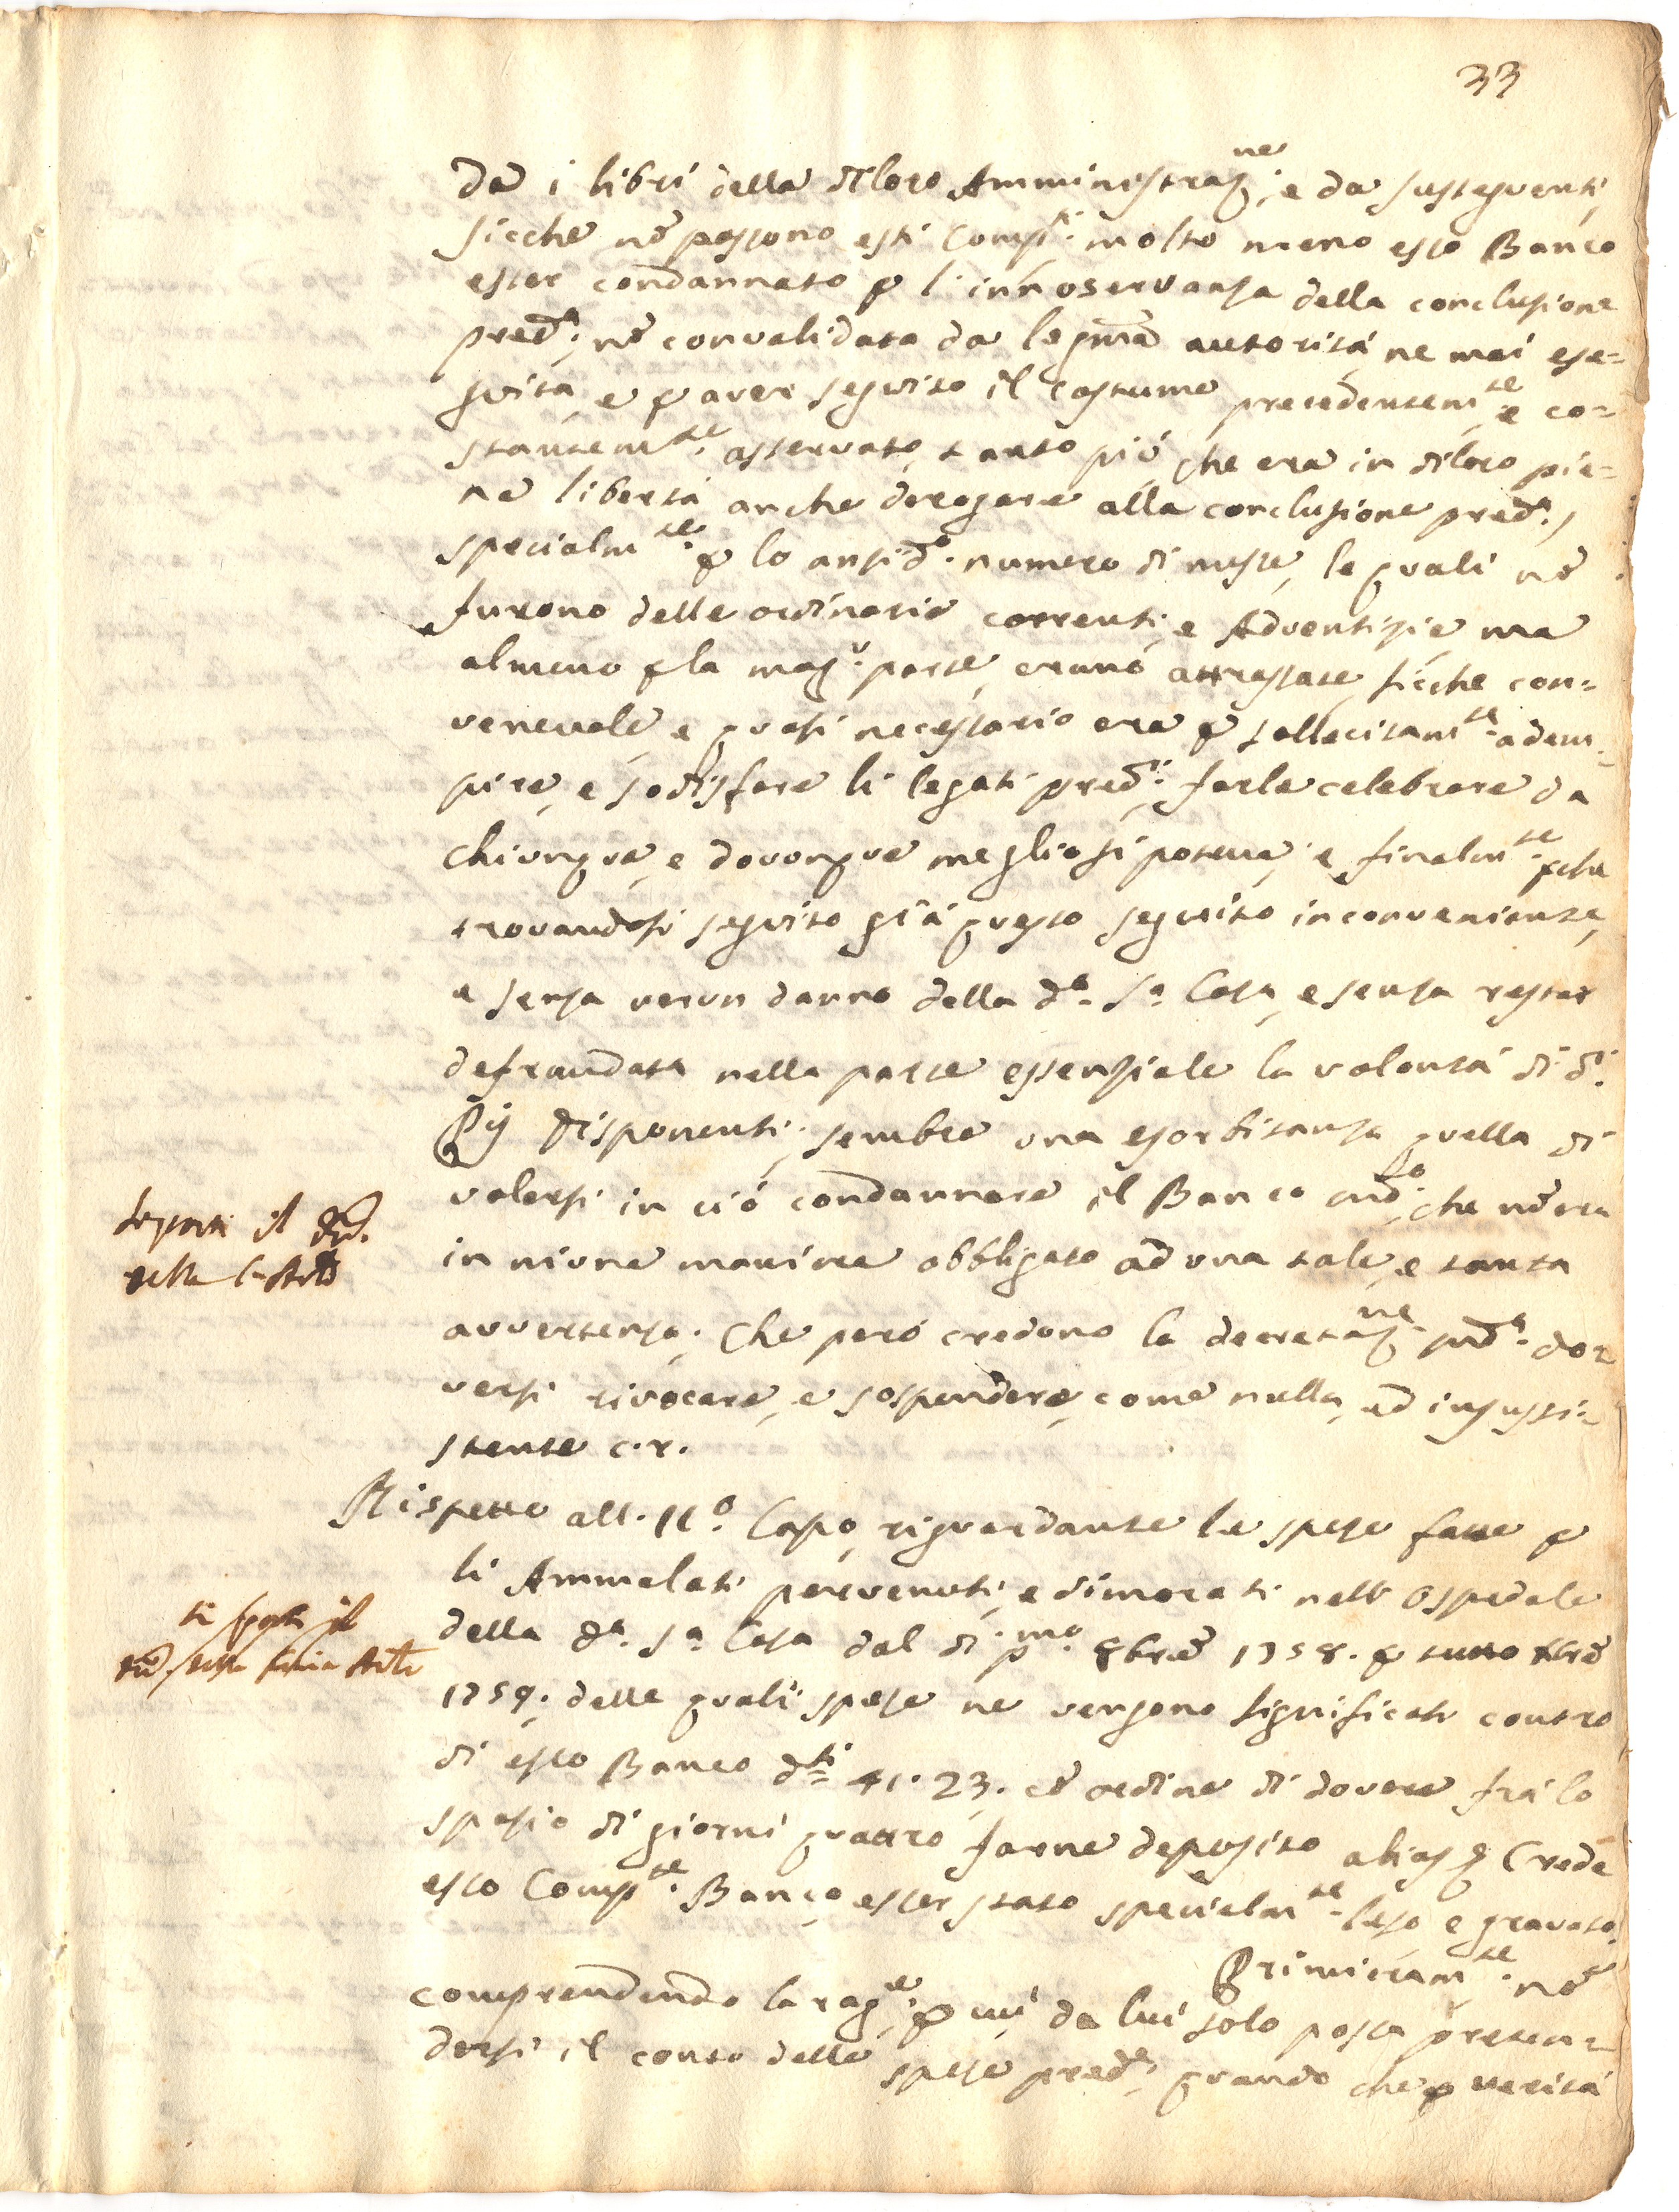 33
da i libri della di loro Amministraz.ne; e da susseguenti,
sicche nõ possono essi Comp.ti molto meno esso Banco
esser condannato p l'innoservanza della conclusione
pred.a, nõ convalidata da leg̃ma autorità, ne mai ese=
guita, e p aver seguito il costume precedentem.te e co=
stantem.te osservato, tanto più che era in di loro pie=
na libertà anche derogare alla conclusione pred.a,
specialm.te p lo ansid.o numero di messe, le quali nõ
furono delle ordinarie correnti, e Adventizie, ma
almeno p la mag.r parte, erano attrassate, sicche con=
venevole, e quasi necessario era p sollecitam.te adem=
pire, e sodisfare li legati pred.i, farle celebrare da
chiunque, e dovunque meglio si poteva; e finalm.te pche
trovandosi seguito già questo seguito inconveniente,
e senza verun danno della d.a S.a Casa, e senza restar
defraudata nella parte essenziale la volontà di d.i
Pij Disponenti, sembra una esorbitanza quella di
volersi in ciò condannare il Banco mẽd.o, che nõ era
in niuna maniera obbligato ad una tale, e tanta
avvertenza. Che però credono la decretaz.ne mẽd.a do=
versi rivocare, e sospendere, come nulla, ed insussi=
stente c.r.
Rispetto all. 11.o Capo, riguardante le spese fatte p
li Ammalati pervenuti, e dimorati nell' Ospedale
della d.a S.a Casa dal dì p.mo 8bre 1758. p tutto Xbre
1759; delle quali spese ne vengono significati contro
di esso Banco d.ti 41.23. cõ ordine di dovere frà lo
spazio di giorni quattro farne deposito alias &. Crede
esso Comp.te Banco esser stato specialm.te leso e gravato.
Primieram.te nõ
comprendendo la rag.e, p cui da lui solo possa preten=
dersi il conto delle spese pred.e, quando che p verità